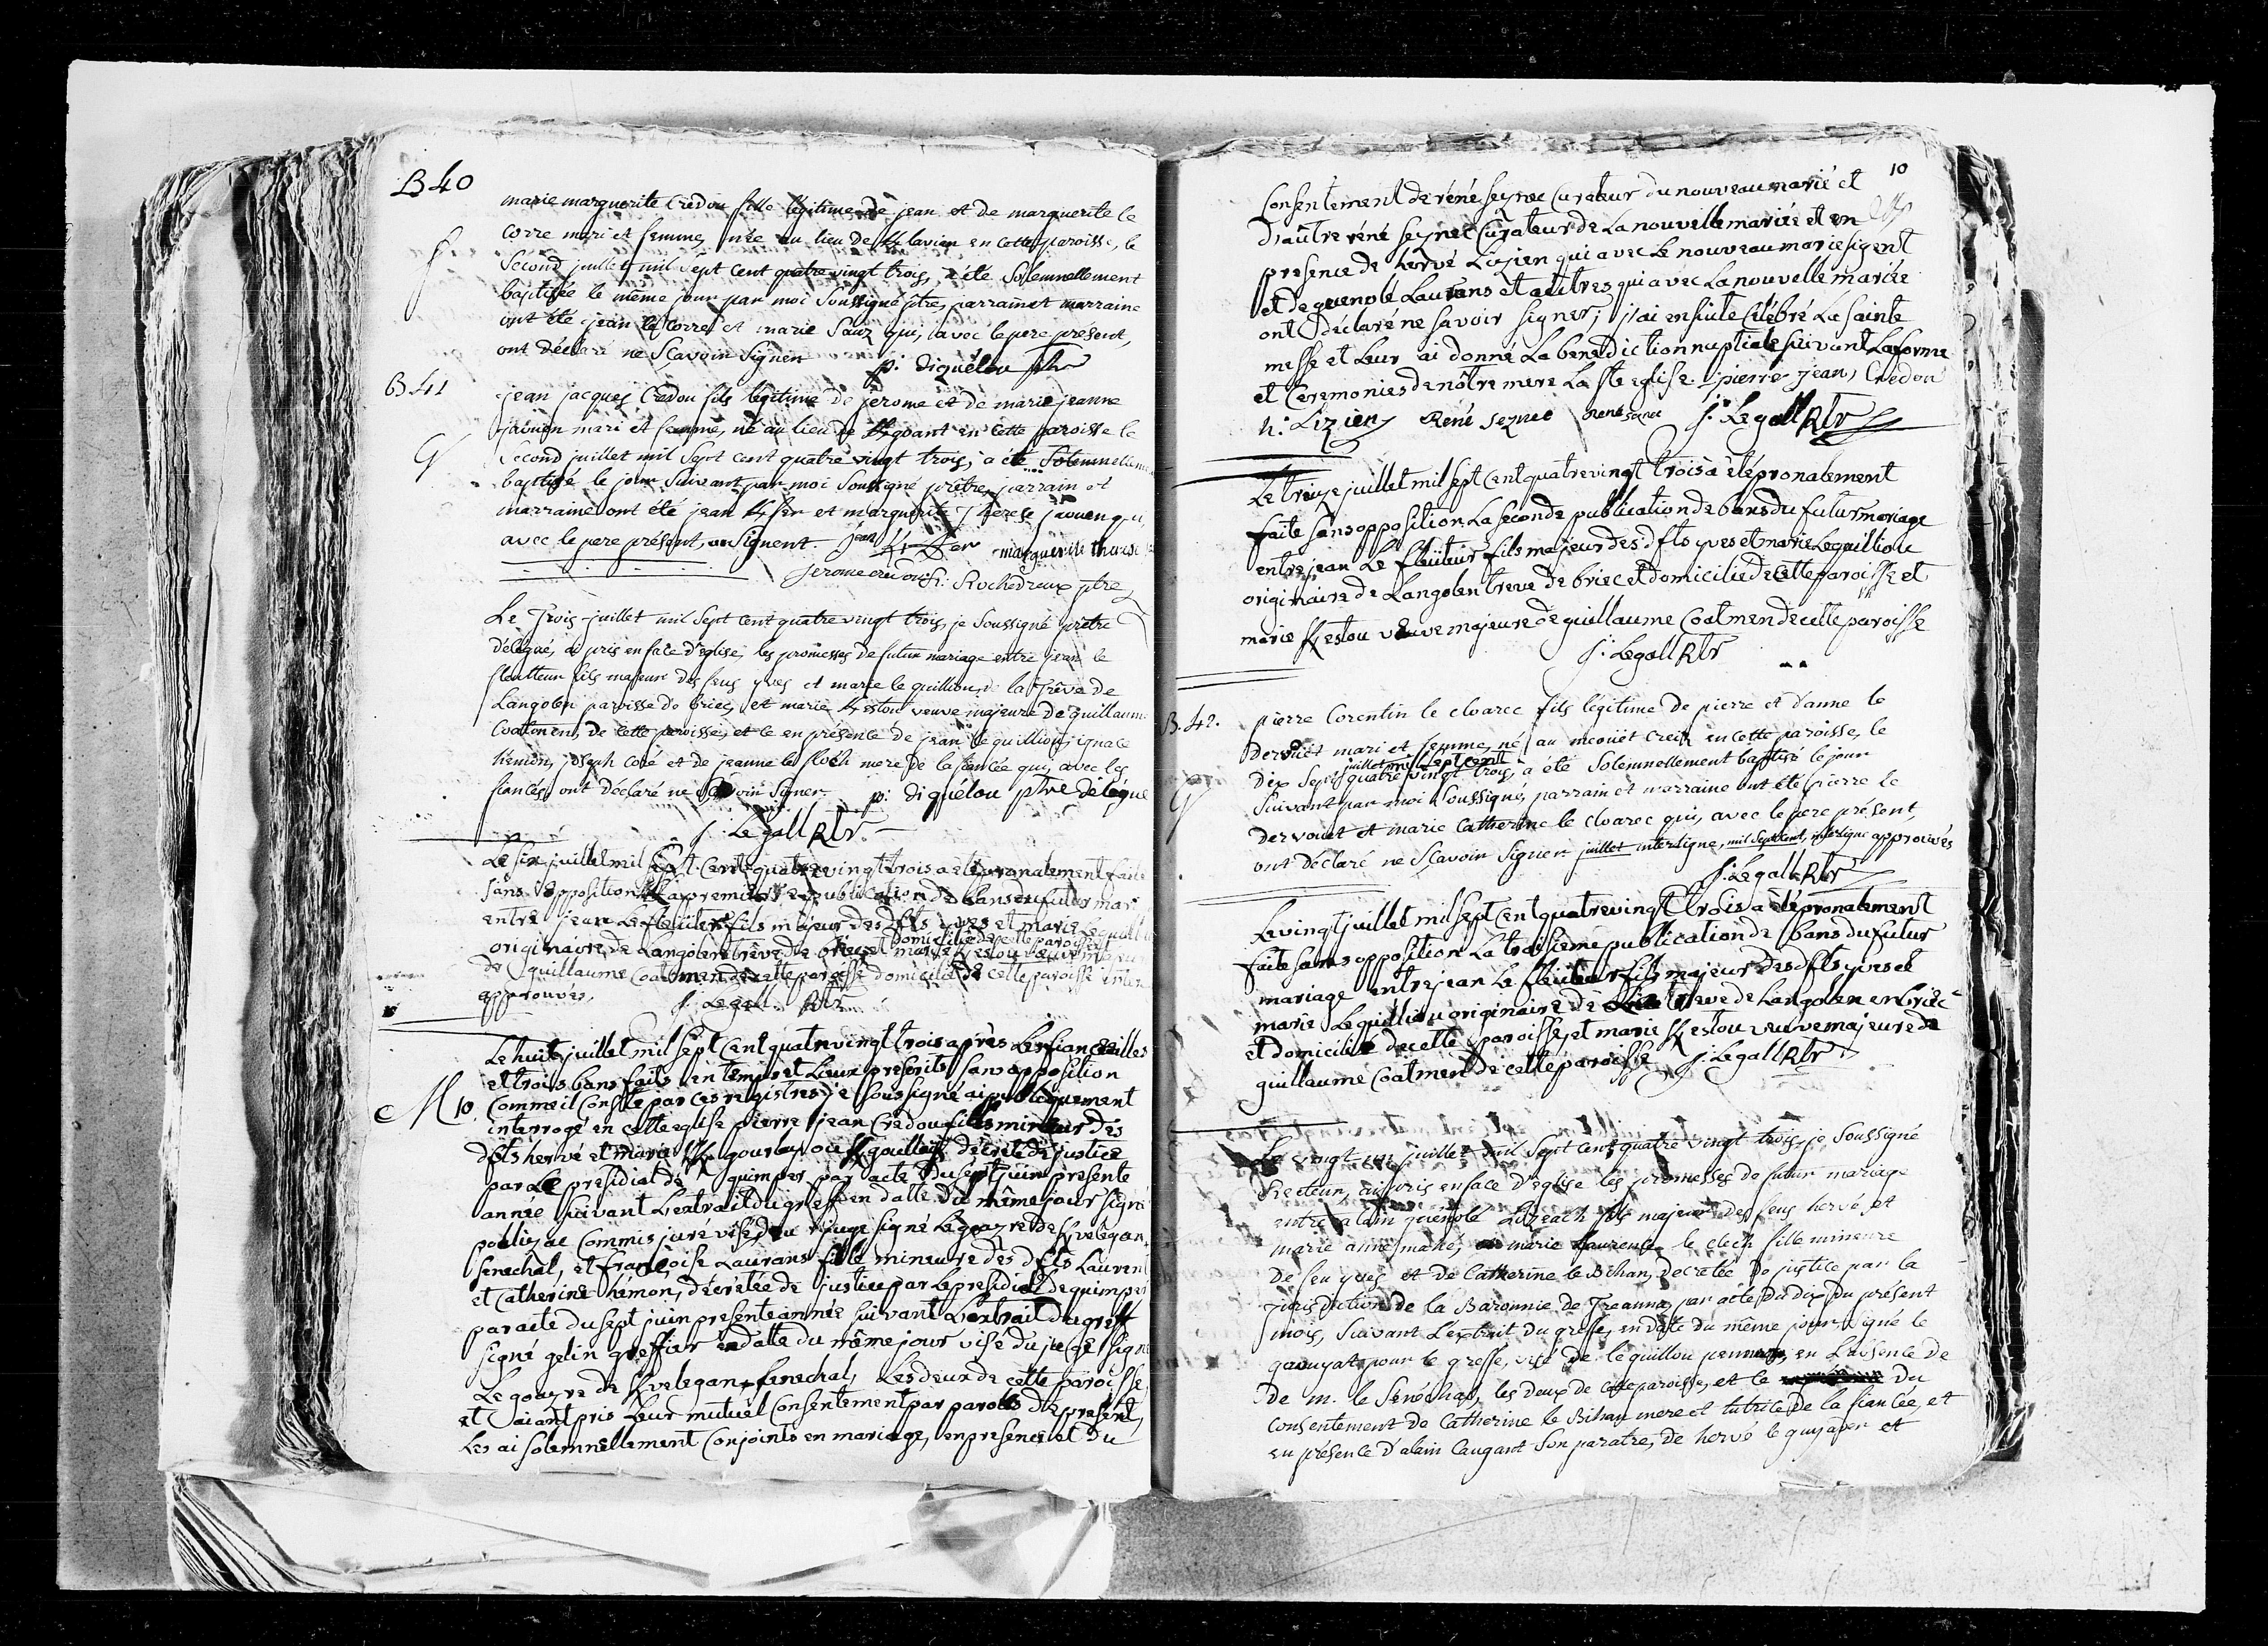 B 40
marie marguerite Credou fille légitime de jean et de marguerite le
corre mari et femme, née au lieu de en cette paroisse, le
f.
Second juillet mil Sept cent quatre vingt trois, a été Solemnellement
baptisée le même jour par moi Soussigné ptre, parrain et marraine
ont été jean le Corre et marie Sauz qui, avec le pere present,
ont déclaré ne Scavoir Signer p: diquélou ptre
B 41
jean jacques Credou fils légitime de jerome et de marie jeanne
jaouen mari et femme, né au lieu de en cette paroisse le
G
Second juillet mil Sept cent quatre vingt trois, a été Solemnellement
baptisé le jour Suivant par moi Soussigné prêtre, parrain et
marraine ont été jean et marguerite Therese jaouen qui
avec le pere présent, on Signent. jean marguerite therese
jerome credou Rochedreux ptre
Le Trois juillet mil Sept cent quatre vingt trois, je Soussigné prêtre
délégué, ai pris en face d'eglise, les promesses de futur mariage entre jean le
fleutteur fils majeur des feus yves et marie le quilliou, de la Trêve de
Langolen paroisse de briec, et marie Kestou veuve majeure de guillaume
Coatmen, de cette paroisse, et ce en présence de jean le quilliou, ignace
hemon, joseph Coré et de jeanne le floch mere de la fiancée qui, avec les
fiancés, ont déclaré ne Scavoir Signer p: diquélou ptre délégué
j: Legall Rtr
Le Six juillet mil Sept Cent quatrevingt trois a été pronalement faite
Sans opposition La premiere publication de bans du futur mar.
entre jean Le fleüteur fils majeur des dfts yves et marie Lequilliou
domicilié de cette paroisse
originaire de Langolen trêve de briec et marie Kestou veuve majeure
de guillaume Coatmen de cette paroisse domicilié de cette paroisse inter
approuvés. j: Legall Rtr
M 10.
Le huit juillet mil Sept Cent quatrevingt trois après Les fiancailles
et trois bans faits en temps et Lieux prescrits Sans opposition
Comme il Conste par ces registres je Soussigné ai publiquement
interrogé en cette eglise pierre jean Credou fils mineur des
dfts hervé et marie Kgourlay ou décrété de justice
par Le presidial de quimper par acte du Sept juin presente
année suivant L'extrait du greff en datte du même jour signé
poulizac Commis juré visé du juge signé Legoazre de Kvelegan
Senechal, et françoise Laurans fille mineure des dfts Laurent
et Catherine hémon, décrétée de justice par Le presidial de quimper
par acte du sept juin presente année suivant L'extrait du greff
signé gelin greffier en datte du même jour visé du juge signé
Le goazre de Kvelegan Senechal, Les deux de cette paroisse
et aiant pris Leur mutuel Consentement par paroles de present,
Les ai Solemnellement Conjoints en mariage, en presence et du
10
Consentement de réné Seznec Curateur du nouveau marié et
d'autre réné Seznec Curateur de La nouvelle mariée et en
presence de hervé Lizien qui avec Le nouveau marié signent
et de guenolé Laurans et autres qui avec La nouvelle mariée
ont déclaré ne savoir signer; j'ai ensuite Célébré La Sainte
messe et Leur ai donné La benediction nuptiale suivant La forme
et Ceremonies de nôtre mere La Ste eglise. pierre jean Credou
h: Lizien René Seznec René Seznec j: Legall Rtr
Le treize juillet mil Sept Cent quatrevingt trois a été pronalement
faite Sans opposition La seconde publication de bans du futur mariage
entre jean Le fleüteur fils majeur des dfts yves et marie Lequilliou
originaire de Langolen treve de briec et domicilié de Cette paroisse et
marie Kestou veuve majeure de guillaume Coatmen de cette paroisse
j: Legall Rtr
B. 42.
pierre Corentin le cloarec fils légitime de pierre et d'anne le
Dervouet mari et femme, né au meouet Creis en cette paroisse, le
juillet mil Sept cent
G
Dix Sept quatre vingt trois, a été Solemnellement baptisé le jour
Suivant par moi Soussigné, parrain et marraine ont été pierre le
dervouet et marie Catherine le cloarec qui, avec le pere présent,
ont déclaré ne Scavoir Signer. juillet interligne, mil Sept Cent, interligne approuvés
j: Legall Rtr
Le vingt juillet mil Sept Cent quatrevingt trois a été pronalement
faite Sans opposition La troisieme publication de bans du futur
mariage entre jean Le fleüteur fils majeur des dfts yves et
marie Lequilliou originaire de La treve de Langolen en briec
et domicilié de cette paroisse et marie Kestou veuve majeure de
guillaume Coatmen de cette paroisse j: Legall Rtr
Le vingt un juillet mil Sept cent quatre vingt trois, je Soussigné
Recteur, ai pris en face d'eglise les promesses de futur mariage
entre alain guénolé fils majeur des feus hervé, et
marie anne mahé, et marie Laurence le clech fille mineure
de feu yves et de Catherine le Bihan, decretée de justice par la
jurisdiction de la Baronnie de Treanna, par acte du dix du présent
mois, Suivant L'extrait du greffe, en date du même jour, signé le
gaouyat pour le greffe, visé de lequillou pennanros, en L'absence de
de m. le Senéchal, les deux de cette paroisse, et ce du
consentement de Catherine le Bihan mere et tutrice de la fiancée, et
en présence d'alain Caugant Son paratre, de hervé le quyaver et